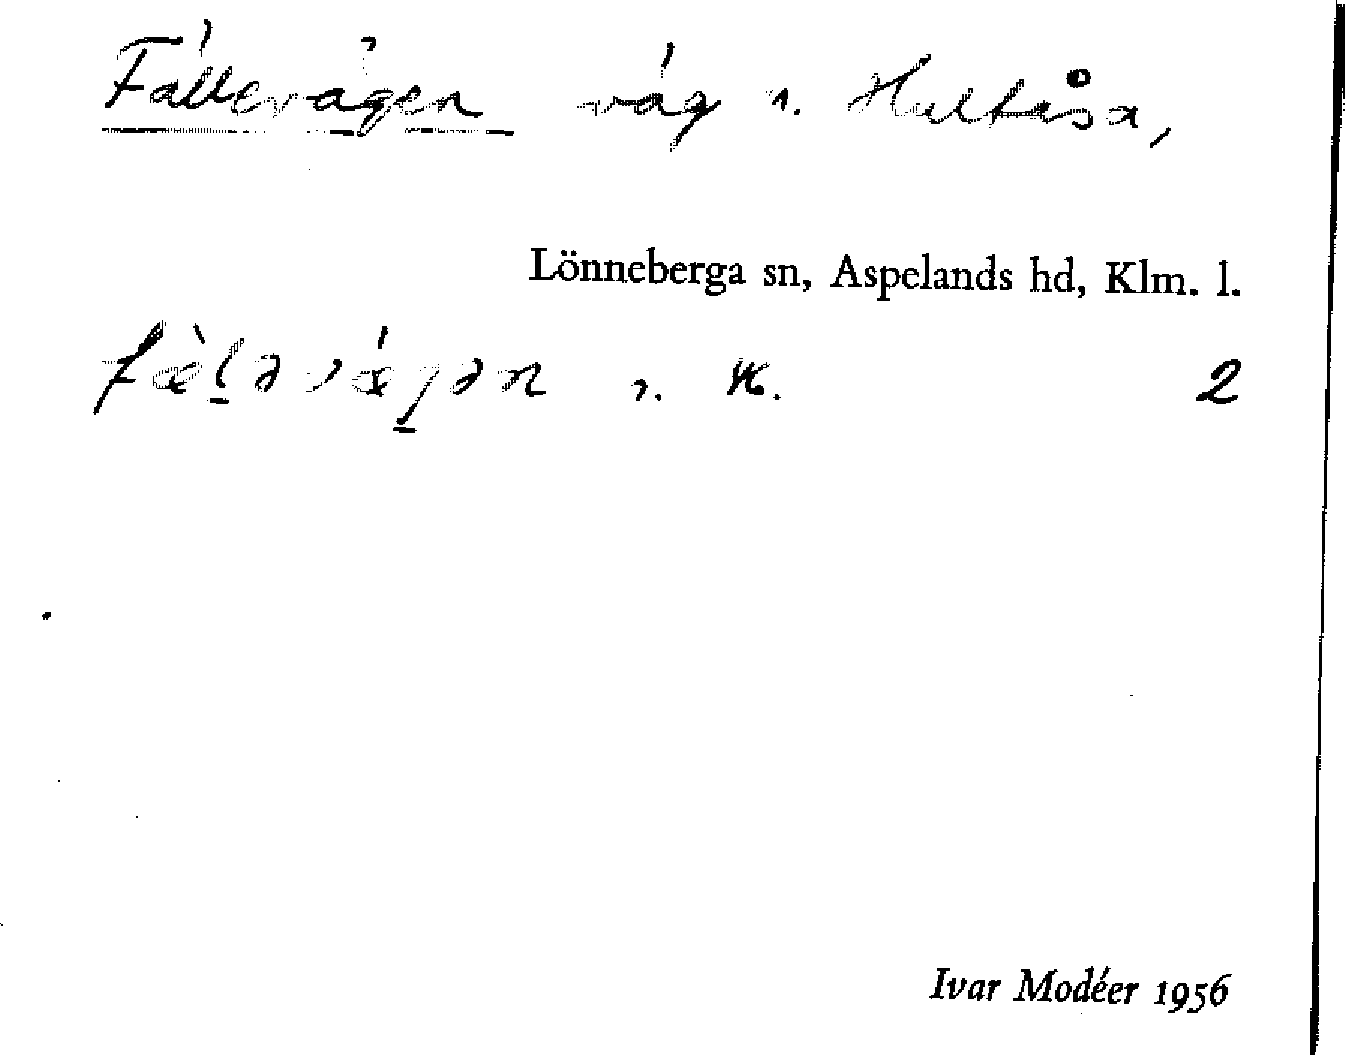 Fällevägen väg i Hultåsa,
Lönneberga sn, Aspelands hd, Klm. l.
fæ̀l̲əvǽg̲ən 2
Ivar Modéer 1956